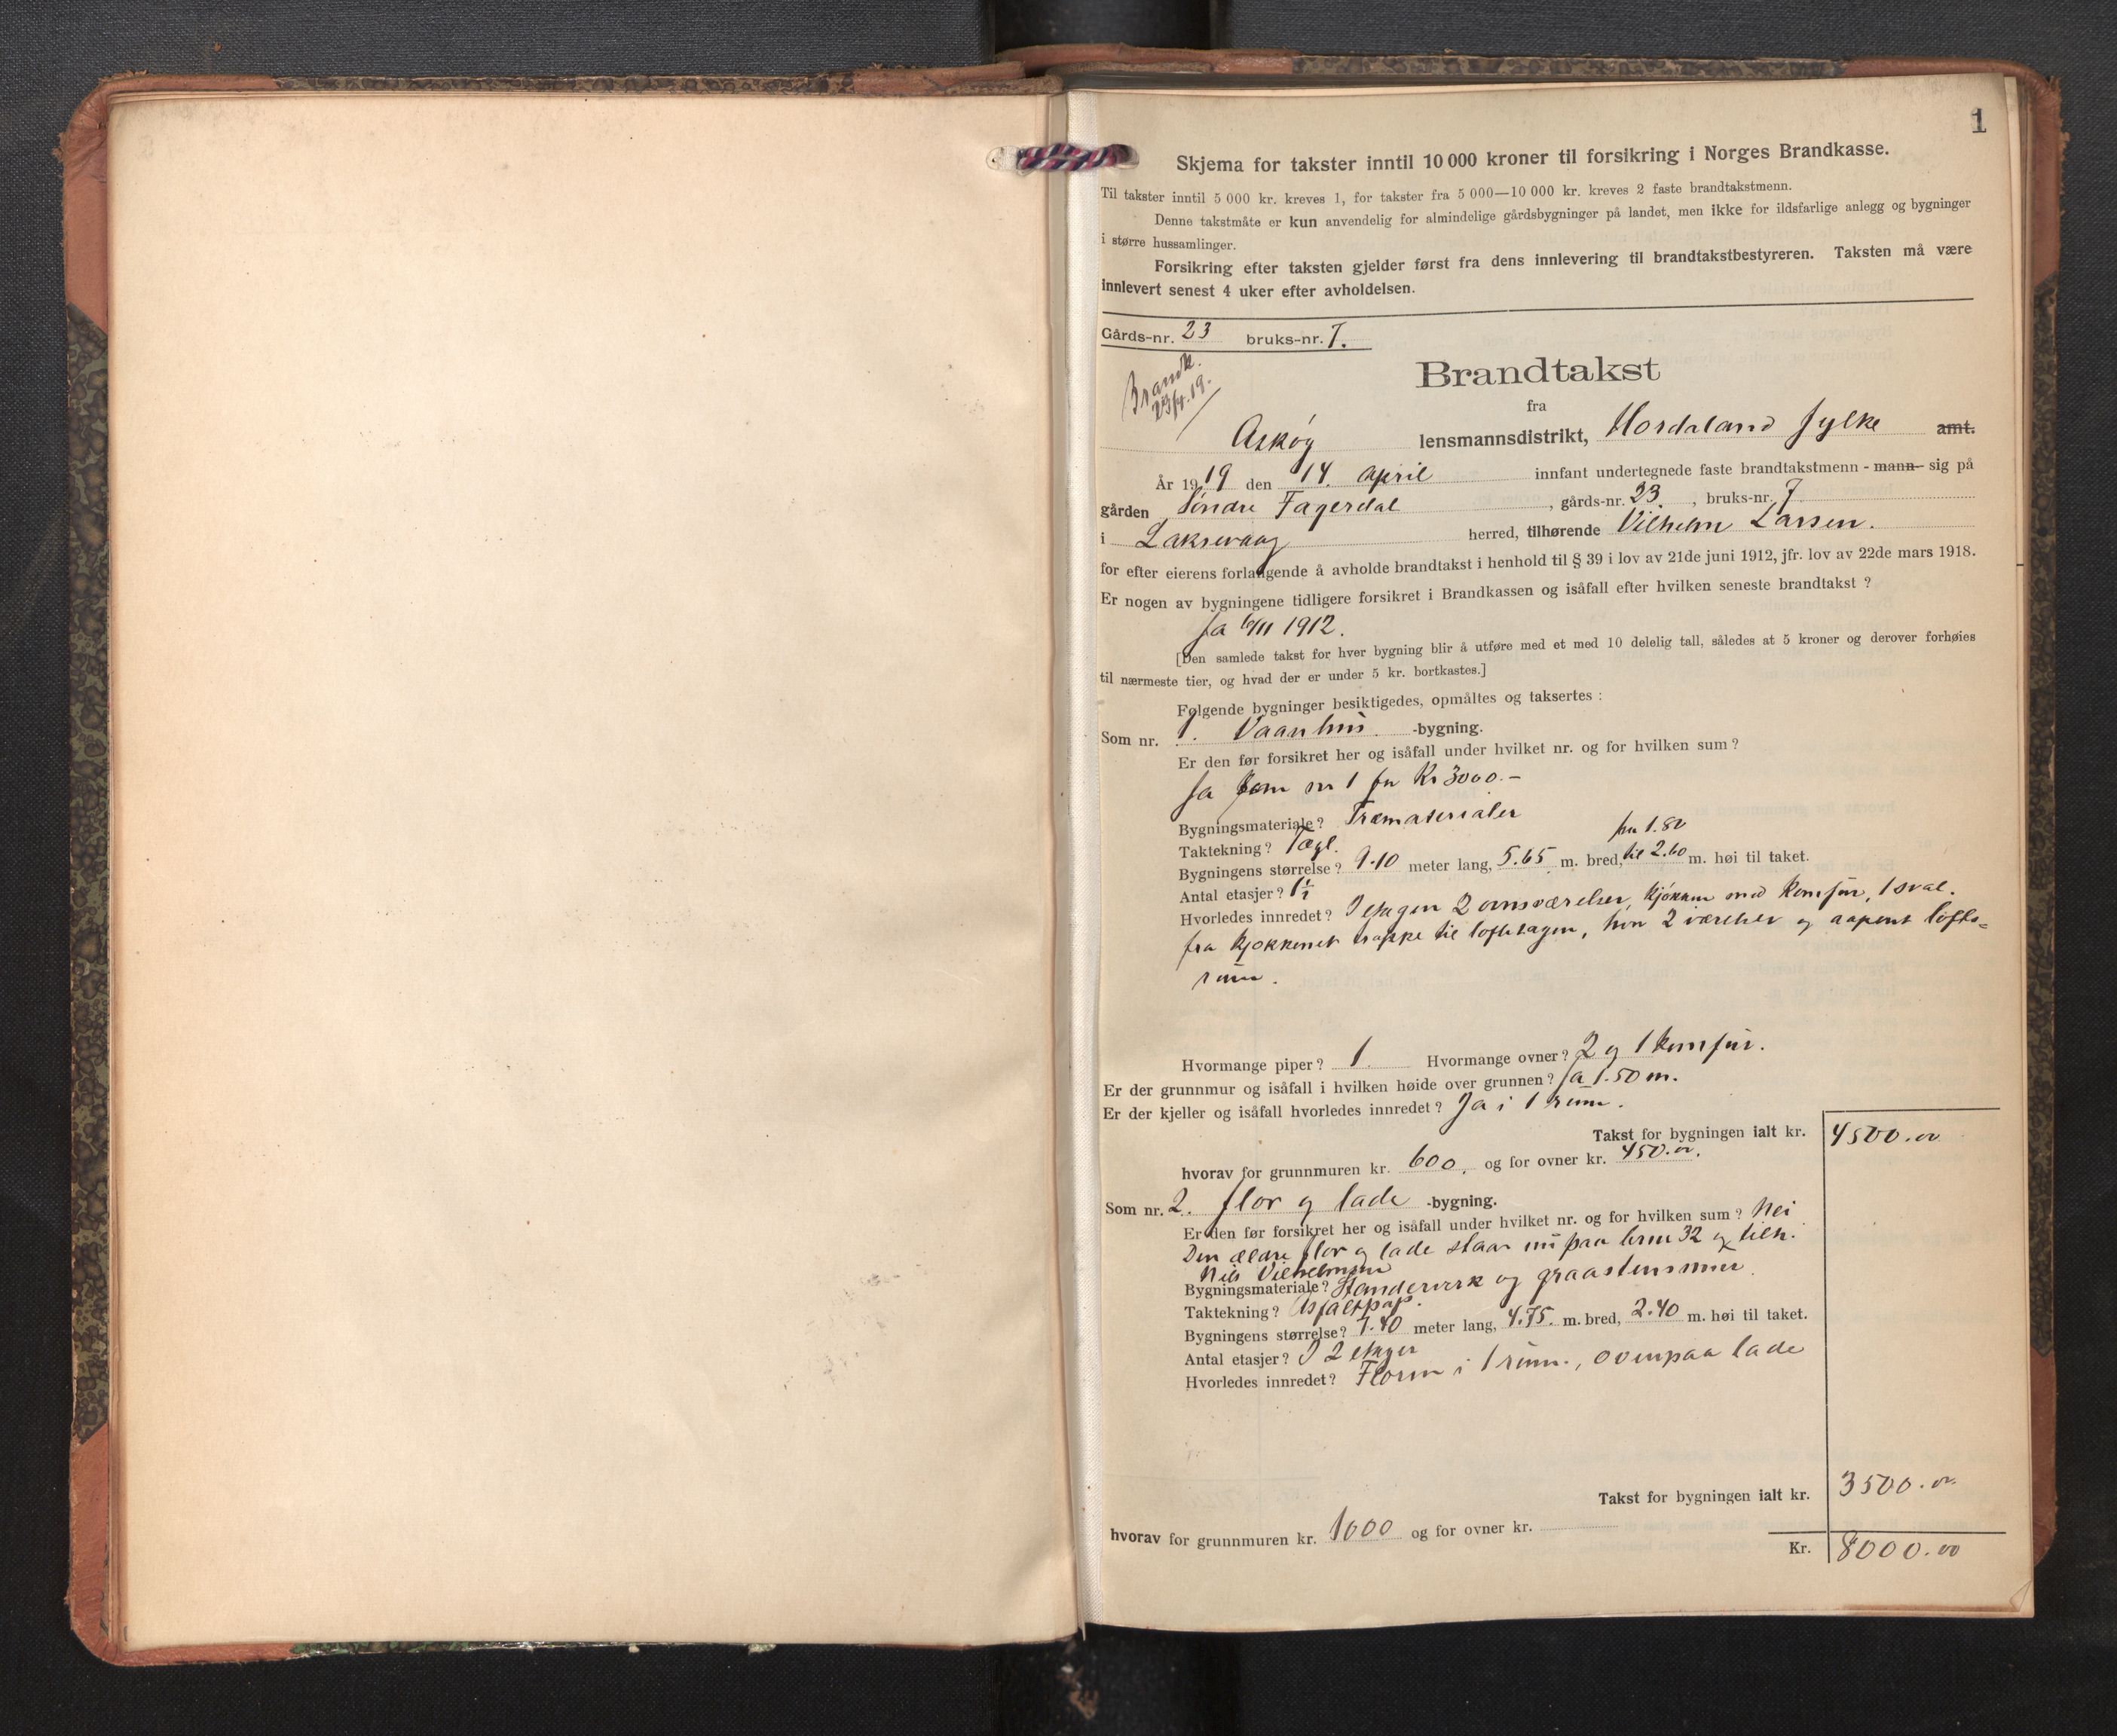 1
Skjema for takster inntil 10 000 kroner til forsikring i Norges Brandkasse.
Til takster inntil 5 000 kr. kreves 1, for takster fra 5 000—10 000 kr. kreves 2 faste brandtakstmenn.
Denne takstmåte er kun anvendelig for almindelige gårdsbygninger på landet, men ikke for ildsfarlige anlegg og bygninger
i større hussamlinger.
Forsikring efter taksten gjelder først fra dens innlevering til brandtakstbestyreren. Taksten må være
innlevert senest 4 uker efter avholdelsen.
Gårds-nr. 23 bruks-nr. 7.
Brandtakst
Brandk.
23/4.19.
fra
Askøy lensmannsdistrikt, Hordaland fylke amt.
År 1919 den 14. april innfant undertegnede faste brandtakstmenn - mann - sig på
gården Söndre Fagerdal, gårds-nr. 23, bruks-nr. 7
i Laksevaag herred, tilhørende Vilhelm Larsen.
for efter eierens forlangende å avholde brandtakst i henhold til § 39 i lov av 21de juni 1912, jfr. lov av 22de mars 1918.
Er nogen av bygningene tidligere forsikret i Brandkassen og isåfall efter hvilken seneste brandtakst ?
Ja 6/11 1912.
[Den samlede takst for hver bygning blir å utføre med et med 10 delelig tall, således at 5 kroner og derover forhøies
til nærmeste tier, og hvad der er under 5 kr. bortkastes.]
Følgende bygninger besiktigedes, opmåltes og taksertes :
Som nr. 1. Vaanhus -bygning.
Er den før forsikret her og isåfall under hvilket nr. og for hvilken sum ?
Ja som nr 1 for Kr 3000.-
Bygningsmateriale ? Træmaterialer
Taktekning ? Tegl.
fra 1.80
Bygningens størrelse ? 9.10 meter lang, 5.65 m. bred, til 2.60 m. høi til taket.
Antal etasjer ? 1½
Hvorledes innredet ? I etagen 2 ovnsværelser, kjøkken med komfur, 1 sval.
fra kjøkkenet trappe til loftetagen, hvor 2 værelser og aapent lofts-
rum.
Hvormange piper ? 1 Hvormange ovner ? 2 og 1 komfur.
Er der grunnmur og isåfall i hvilken høide over grunnen ? Ja 1.50 m.
Er der kjeller og isåfall hvorledes innredet ? Ja i 1 rum.
Takst for bygningen ialt kr. 4500.00
hvorav for grunnmuren kr. 600, og for ovner kr. 450.00.
Som nr. 2. flor og lade -bygning.
Er den før forsikret her og isåfall under hvilket nr. og for hvilken sum ? Nei
Den ældre flor og lade staar nu paa brnr 32 og tilh.
Nils Vilhelmsen
Bygningsmateriale ? Standerverk og graastensmur
Taktekning ? Asfaltpap.
Bygningens størrelse ? 7.40 meter lang, 4.75. m. bred, 2.40 m. høi til taket.
Antal etasjer ? I 2 etager
Hvorledes innredet ? Floren i 1 rum., ovenpaa lade
Takst for bygningen ialt kr. 3500.00
hvorav for grunnmuren kr. 1000 og for ovner kr.
Kr. 8000.00